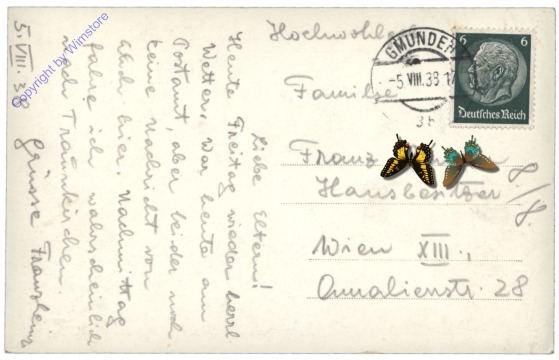 5. VIII. 38
Liebe Eltern!
Heute Freitag wieder herrl
Wetter. War heute am
Postamt, aber leider noch
keine Nachricht von
Euch hier. Nachmittag
fahre ich wahrscheinlich
nach Traunkirchen.
Grüsse Franzheinz
Copyright by Wimstore
Hochwohlgeb
Familie
Franz
Hausbesitzer
Wien XIII.,
Amalienstr. 28
GMUNDEN
-5.VIII.38.17
3b
6 6
Deutsches Reich